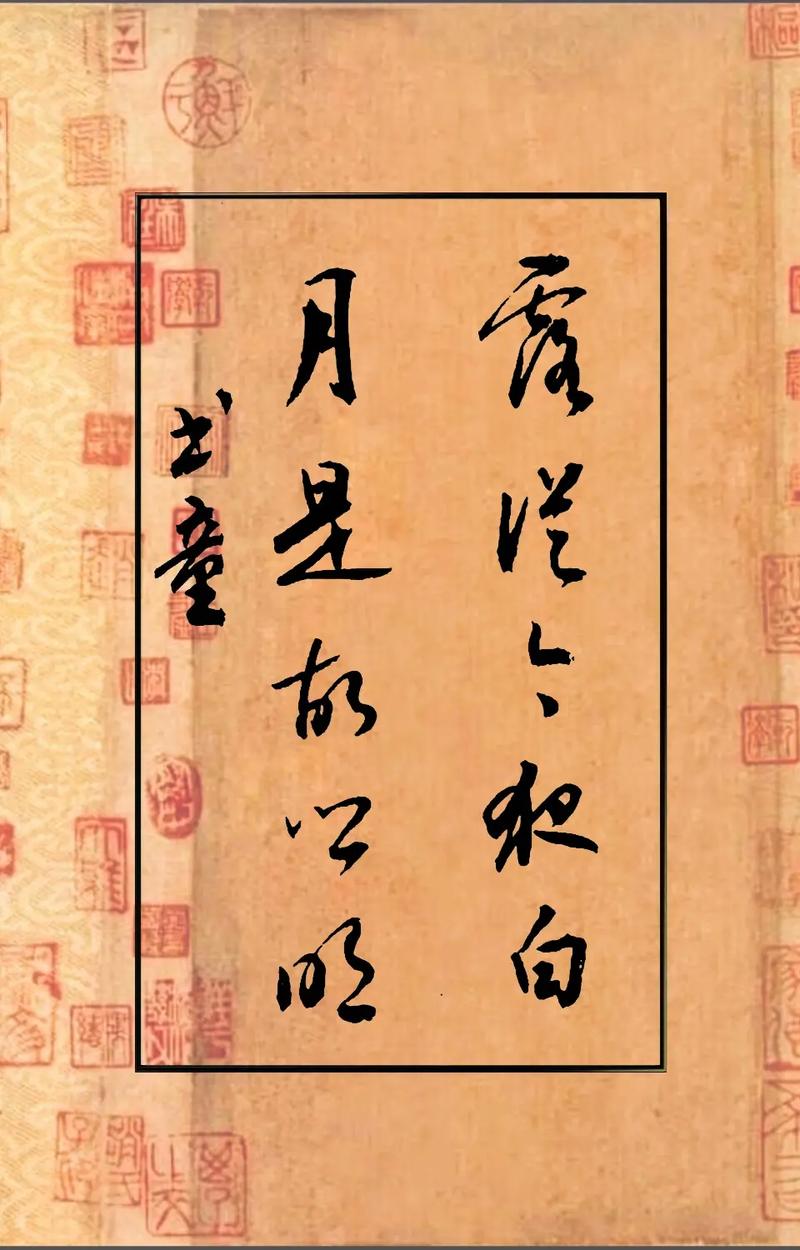 露從今夜白
月是故鄉明
书童